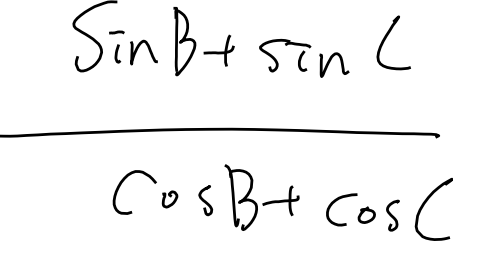 sinB+ sin C
cosB+ cosC